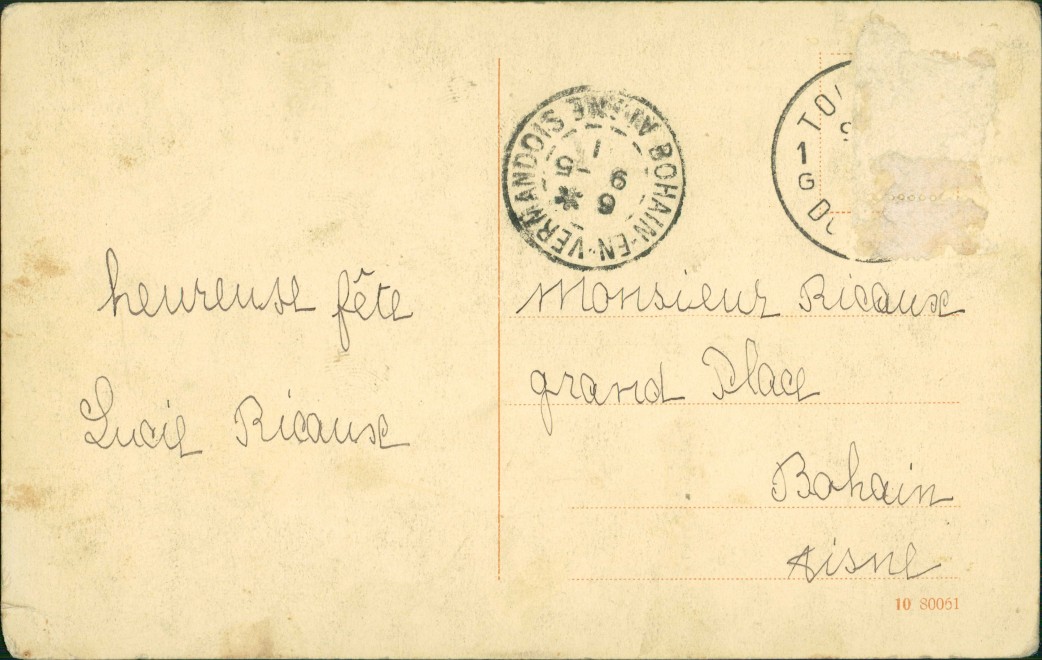 heureuse fête
Lucie Ricaux
BOHAIN-EN-VERMANDOIS AISNE
1
9
6
1
G
Monsieur Ricaux
grand Place
Bohain
Aisne
10 80051